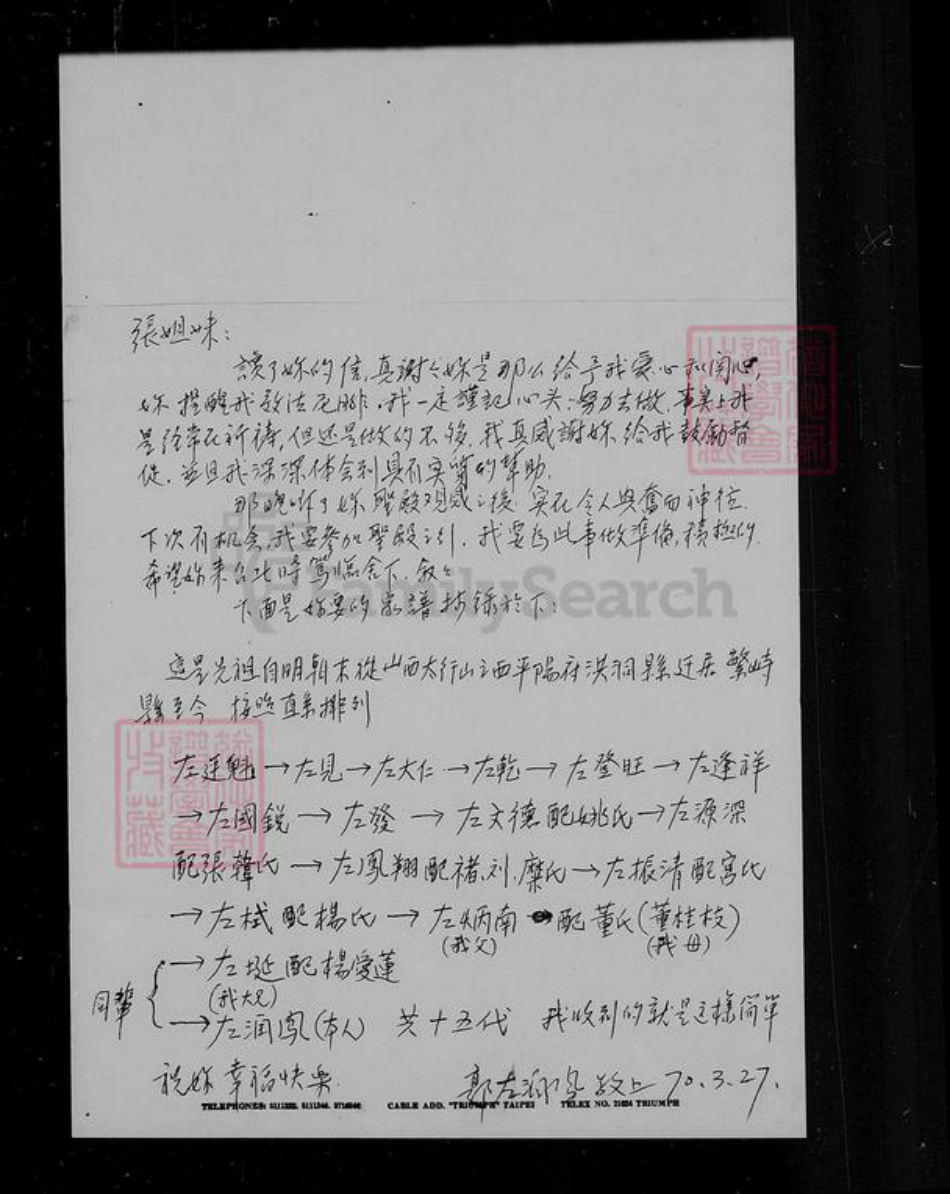 張姐妹：
讀了妳的信，真謝々妳是那么给予我爱心和関心，
妳提醒我 我一定謹記心头，努力去做，事实上我
是经常在祈祷，但还是做的不够，我真感謝妳给我鼓勵督
促，並且我深深体会到具有实質的幫助，
那晚听了妳聖殿观感之後，实在令人興奮而神往，
下次有机会，我要参加聖殿之行，我要為此事做準備，積極的，
希望妳来台北時駕臨舍下，敘々
下面是妳要的家譜抄錄於下：
FamilySearch
這是先祖自明朝末從山西太行山之西平陽府洪洞縣迁居繁峙
縣至今 按照直系排列
左连魁→左見→左大仁→左乾→左登旺→左逢祥
→左國鋭→左發→左文德配姚氏→左源深
配張韓氏→左鳳翔配褚.刘.糜氏→左振清配宫氏
→左栻配楊氏→左炳南 配董氏(董桂枝)
(我父) (我母)
→左埏配楊愛蓮
同輩 (我大兄)
→左润鳳(本人) 共十五代 我收到的就是这樣简單
祝妳幸福快乐. 郭左润鳳敬上 70.3.27.
TELEPHONES: CABLE ADD. "TRIUMPH" TAIPEI TELEX NO. TRIUMPH